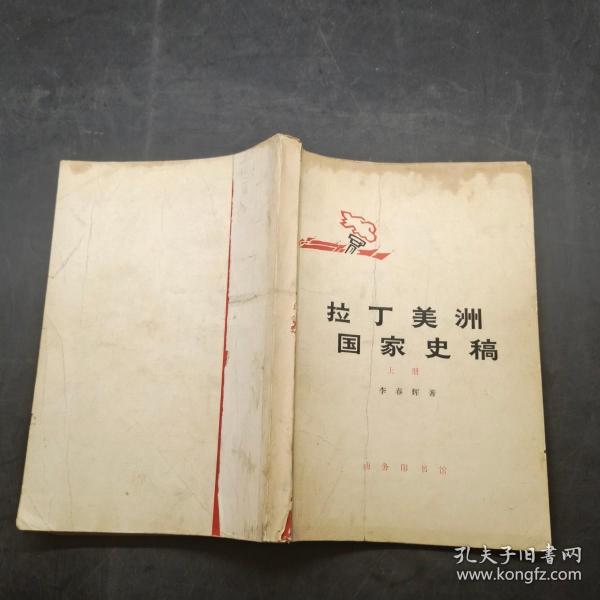 拉丁美洲
国家史稿
上册
李春辉著
商务印书馆
孔夫子旧书网
www.kongfz.com